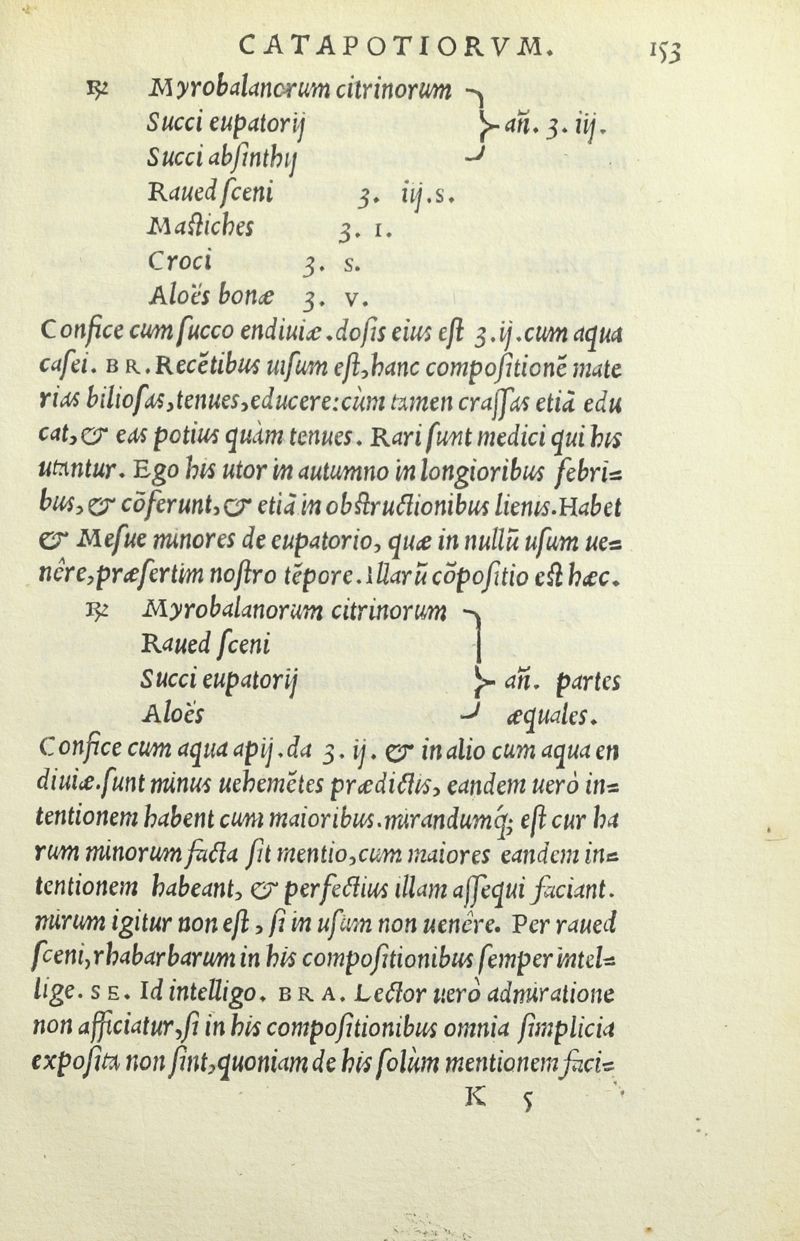 CATAPOTIORVM. 153
℞ Myrobalanorum citrinorum
Succi eupatorij añ. ʒ. iij.
Succi absinthij
Raued sceni ʒ. iij.s.
Mastiches ʒ. 1.
Croci ʒ. s.
Aloës bonæ ʒ. v.
Confice cum succo endiuiæ.dosis eius est ʒ.ij.cum aqua
casei. BR. Recẽtibus uisum est,hanc compositionẽ mate
rias biliosas,tenues,educere:cùm tamen crassas etiã edu
cat,& eas potius quàm tenues. Rari sunt medici qui his
utuntur. Ego his utor in autumno in longioribus febri=
bus,& cõferunt,& etiã in obstructionibus lienis.Habet
& Mesue minores de eupatorio, quæ in nullũ usum ue=
nêre,præsertim nostro tẽpore.Illarũ cõpositio est hæc.
℞ Myrobalanorum citrinorum
Raued sceni
Succi eupatorij añ. partes
Aloës æquales.
Confice cum aqua apij.da ʒ. ij. & in alio cum aqua en
diuiæ.sunt minus uehemẽtes prædictis, eandem uerò in=
tentionem habent cum maioribus.mirandumq́; est cur ha
rum minorum facta sit mentio,cum maiores eandem in=
tentionem habeant, & perfectius illam assequi faciant.
mirum igitur non est, si in usum non uenêre. Per raued
sceni,rhabarbarum in his compositionibus semper intel=
lige. SE. Id intelligo. BRA. Lector uerò admiratione
non afficiatur,si in his compositionibus omnia simplicia
exposita non sint,quoniam de his solùm mentionem faci=
K 5